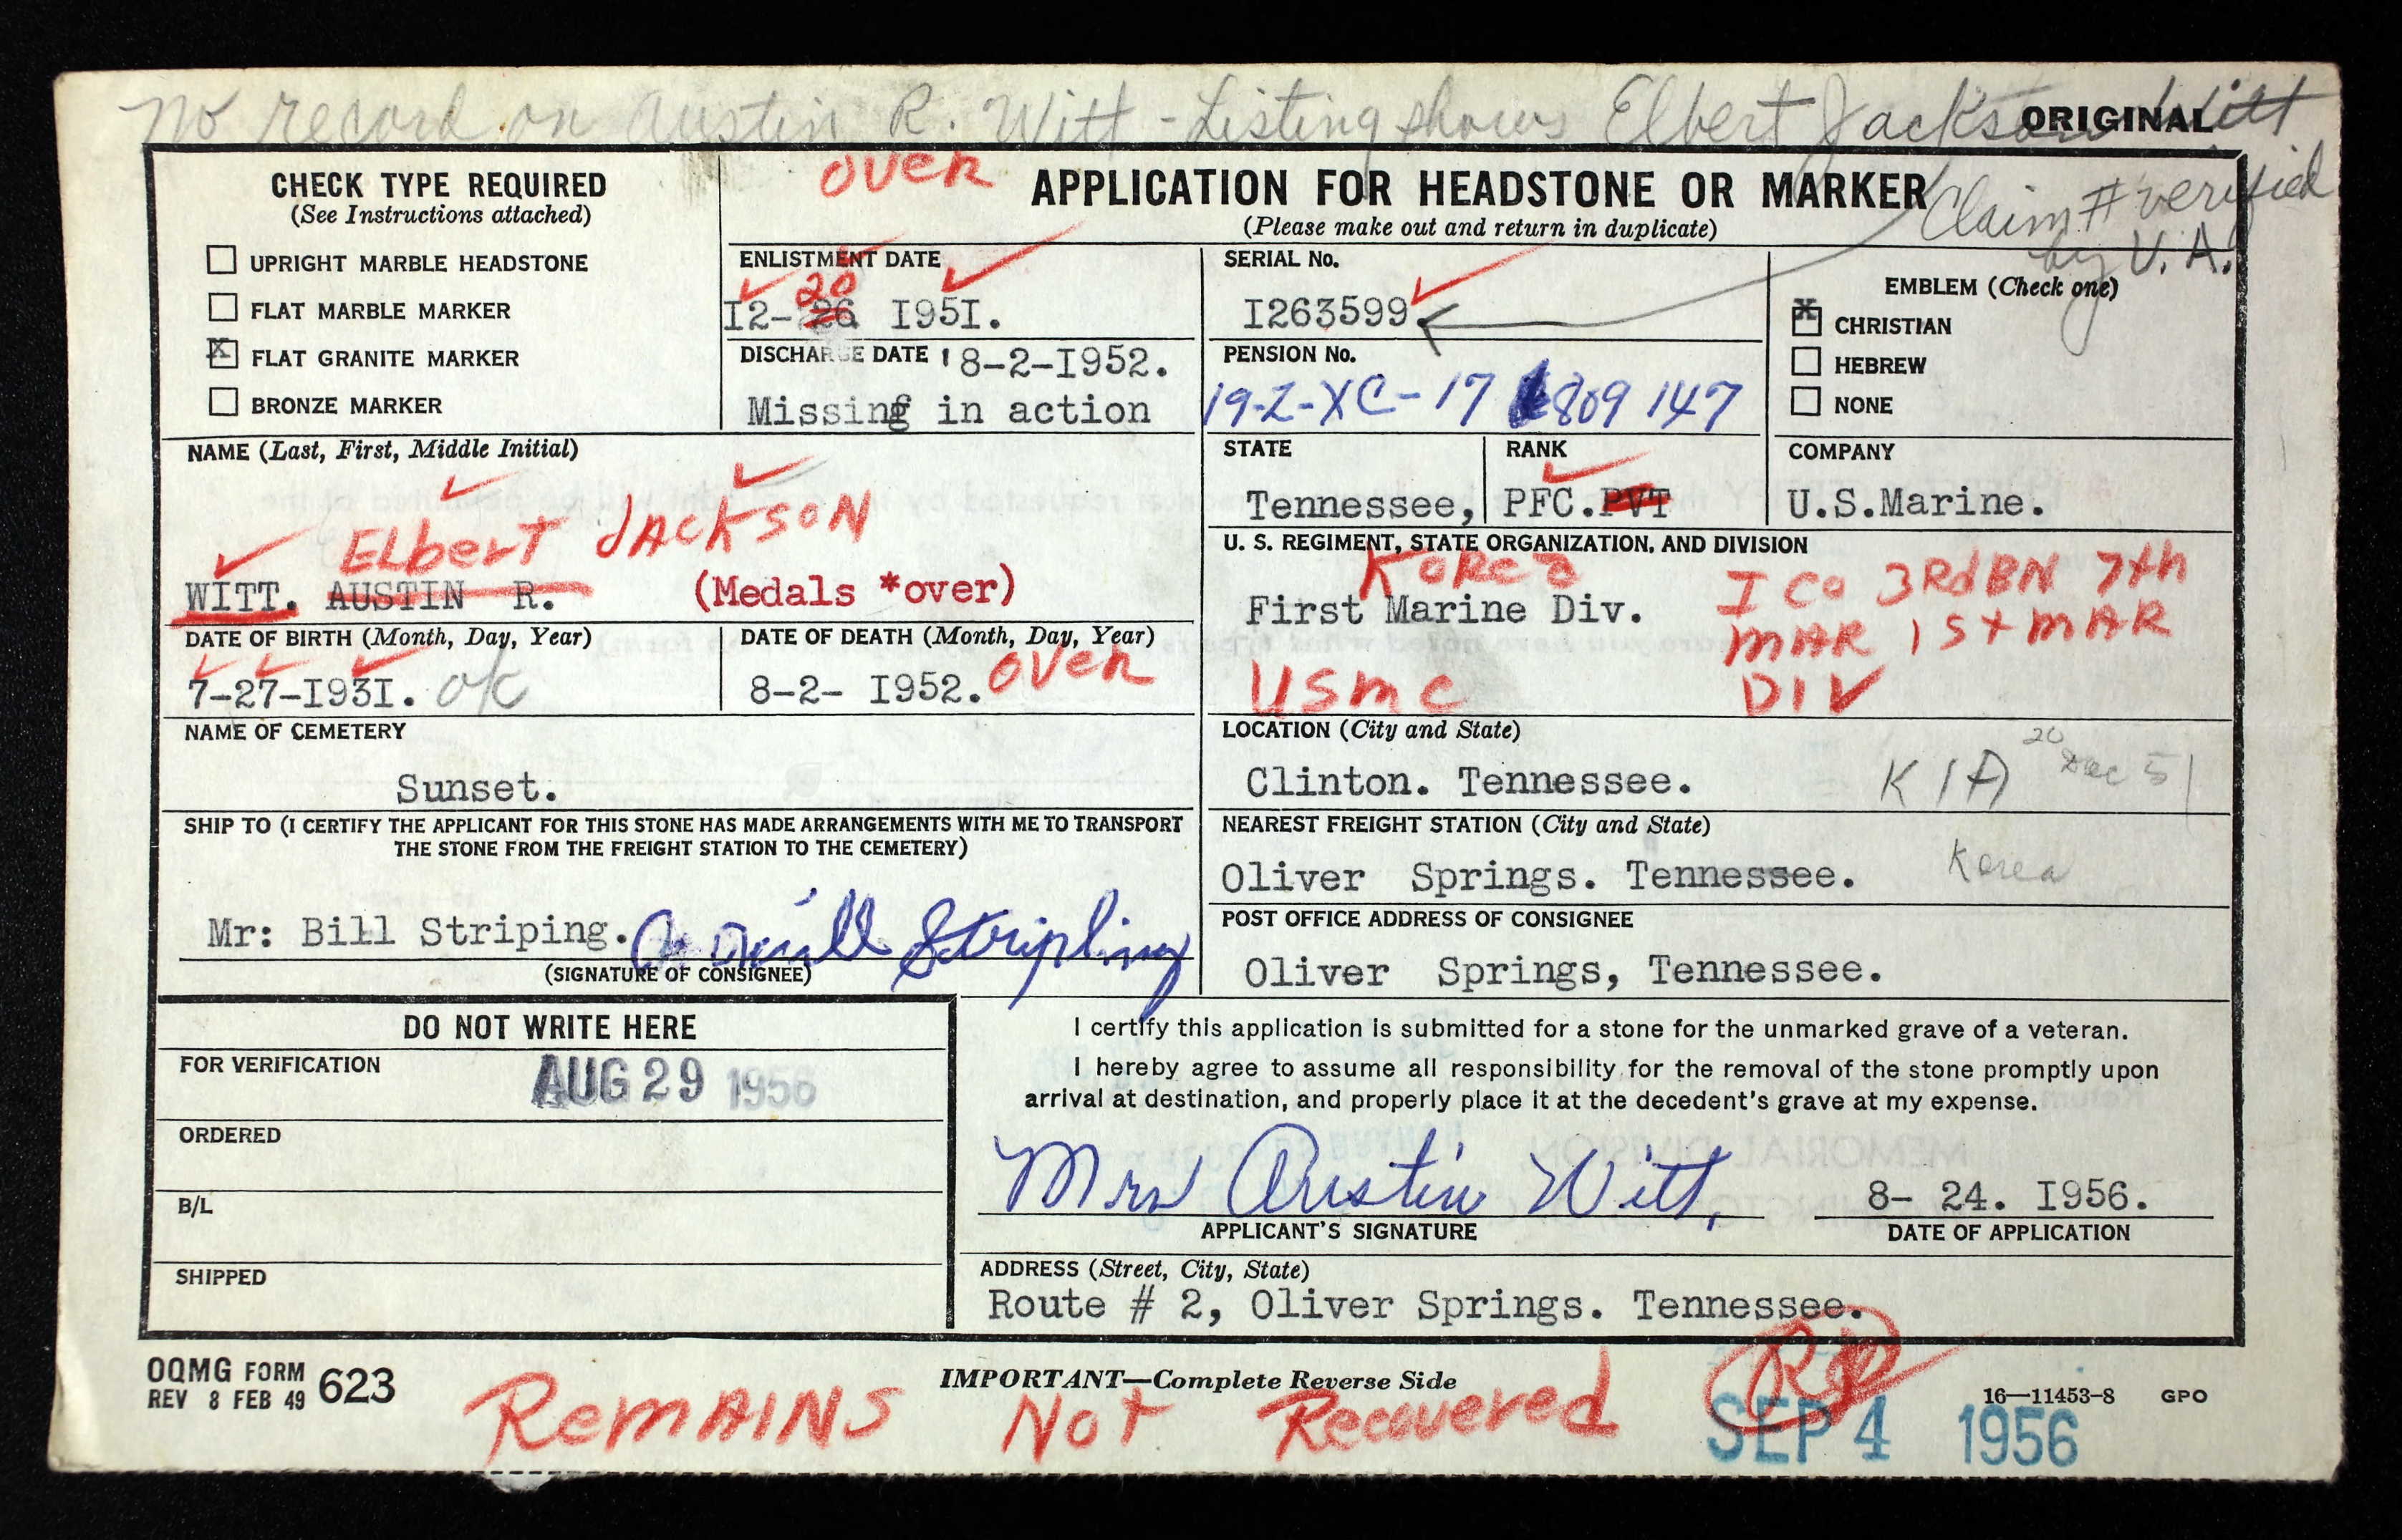 No record on Austin R. Witt - Listing shows Elbert Jackson Witt
ORIGINAL
Claim # verified
by V.A.
CHECK TYPE REQUIRED
(See Instructions attached)
☐ UPRIGHT MARBLE HEADSTONE
☐ FLAT MARBLE MARKER
☒ FLAT GRANITE MARKER
☐ BRONZE MARKER
OVER
APPLICATION FOR HEADSTONE OR MARKER
(Please make out and return in duplicate)
ENLISTMENT DATE
20
I2-26 I95I.
DISCHARGE DATE 8-2-I952.
Missing in action
SERIAL No.
I263599
PENSION No.
19-Z-XC-17 809 147
EMBLEM (Check one)
☒ CHRISTIAN
☐ HEBREW
☐ NONE
NAME (Last, First, Middle Initial)
ELbeRT JACKSON
WITT. AUSTIN R. (Medals *over)
STATE
Tennessee,
RANK
PFC.PVT
COMPANY
U.S.Marine.
U. S. REGIMENT, STATE ORGANIZATION, AND DIVISION
Korea
First Marine Div.
USMC
I Co 3Rd BN 7th
MAR 1st MAR
DIV
DATE OF BIRTH (Month, Day, Year)
7-27-I93I. ok
DATE OF DEATH (Month, Day, Year)
8-2- I952. OVER
NAME OF CEMETERY
Sunset.
LOCATION (City and State)
Clinton. Tennessee.
KIA 20 Dec 51
Korea
SHIP TO (I CERTIFY THE APPLICANT FOR THIS STONE HAS MADE ARRANGEMENTS WITH ME TO TRANSPORT
THE STONE FROM THE FREIGHT STATION TO THE CEMETERY)
Mr: Bill Striping. Stripling
(SIGNATURE OF CONSIGNEE)
NEAREST FREIGHT STATION (City and State)
Oliver Springs. Tennessee.
POST OFFICE ADDRESS OF CONSIGNEE
Oliver Springs, Tennessee.
DO NOT WRITE HERE
FOR VERIFICATION
AUG 29 1956
ORDERED
B/L
SHIPPED
I certify this application is submitted for a stone for the unmarked grave of a veteran.
I hereby agree to assume all responsibility for the removal of the stone promptly upon
arrival at destination, and properly place it at the decedent's grave at my expense.
Mrs Austin Witt,
APPLICANT'S SIGNATURE
8- 24. I956.
DATE OF APPLICATION
ADDRESS (Street, City, State)
Route # 2, Oliver Springs. Tennessee.
OQMG FORM 623
REV 8 FEB 49
IMPORTANT—Complete Reverse Side
16—11453-8 GPO
Remains Not Recovered
SEP 4 1956